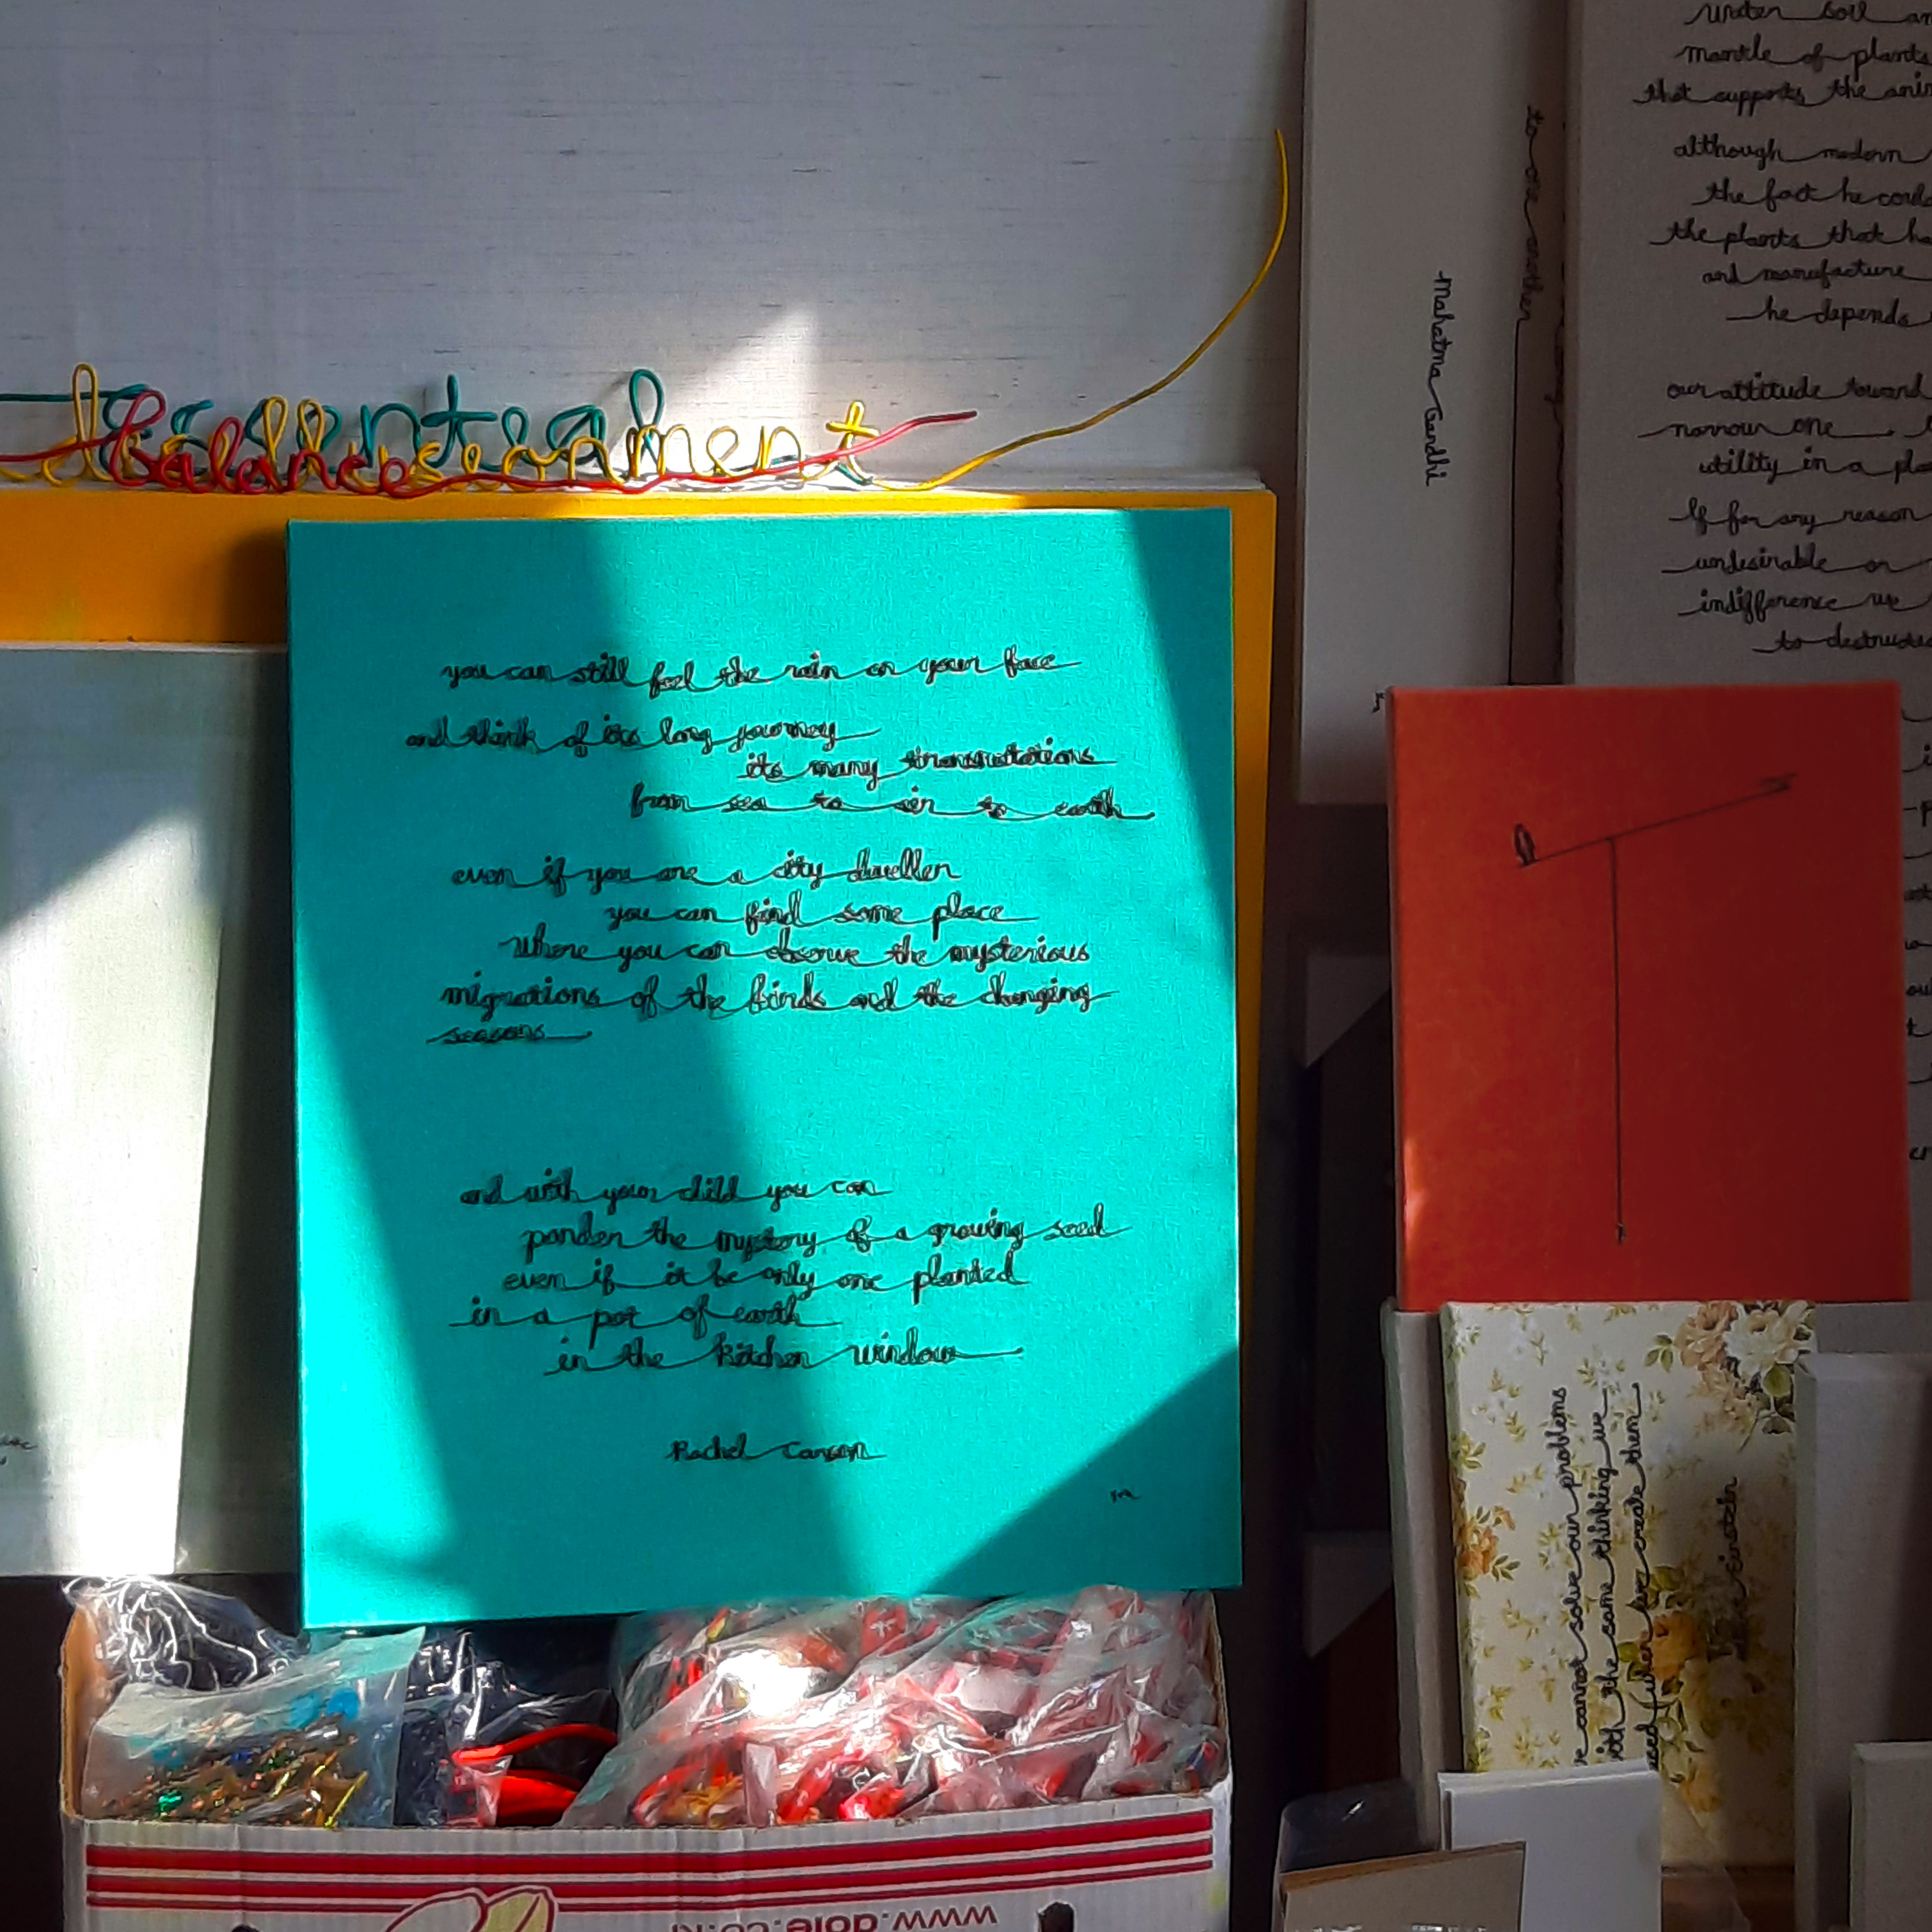 balance
you can still feel the rain on your face
and think of its long journey
its many transmutations
from sea to air to earth
even if you are a city dweller
you can find some place
where you can observe the mysterious
migrations of the birds and the changing
seasons
and with your child you can
ponder the mystery of a growing seed
even if it be only one planted
in a pot of earth
in the kitchen window
Rachel Carson
to one another
Mahatma Gandhi
water soil
mantle of plants
that supports the
although modern
the fact he
the plants that
and manufacture
he depends
our attitude toward
narrow one
utility in a
If for any reason
undesirable or
indifference we
to
cannot solve our problems
with the same thinking we
used when we create them
einstein
www.dole.co.